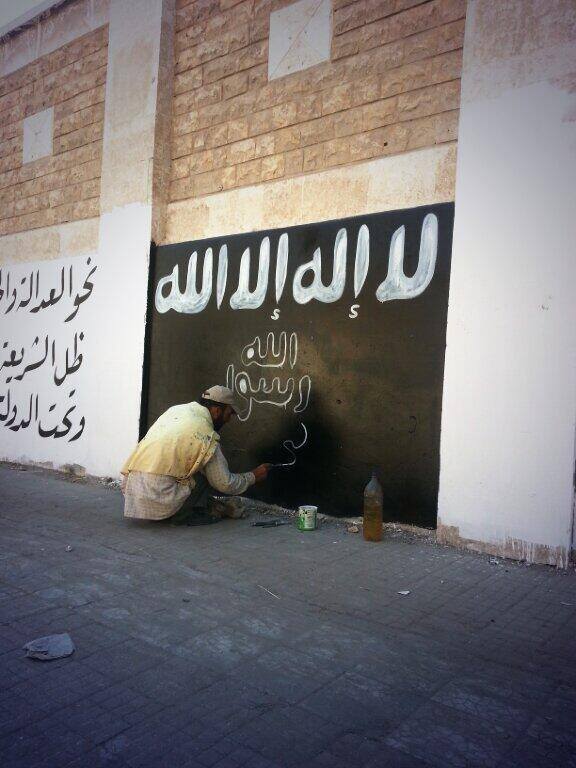 لا إله إلا الله
الله
رسول
نحو العدالة
ظل الشريعة
وتحت الدولة